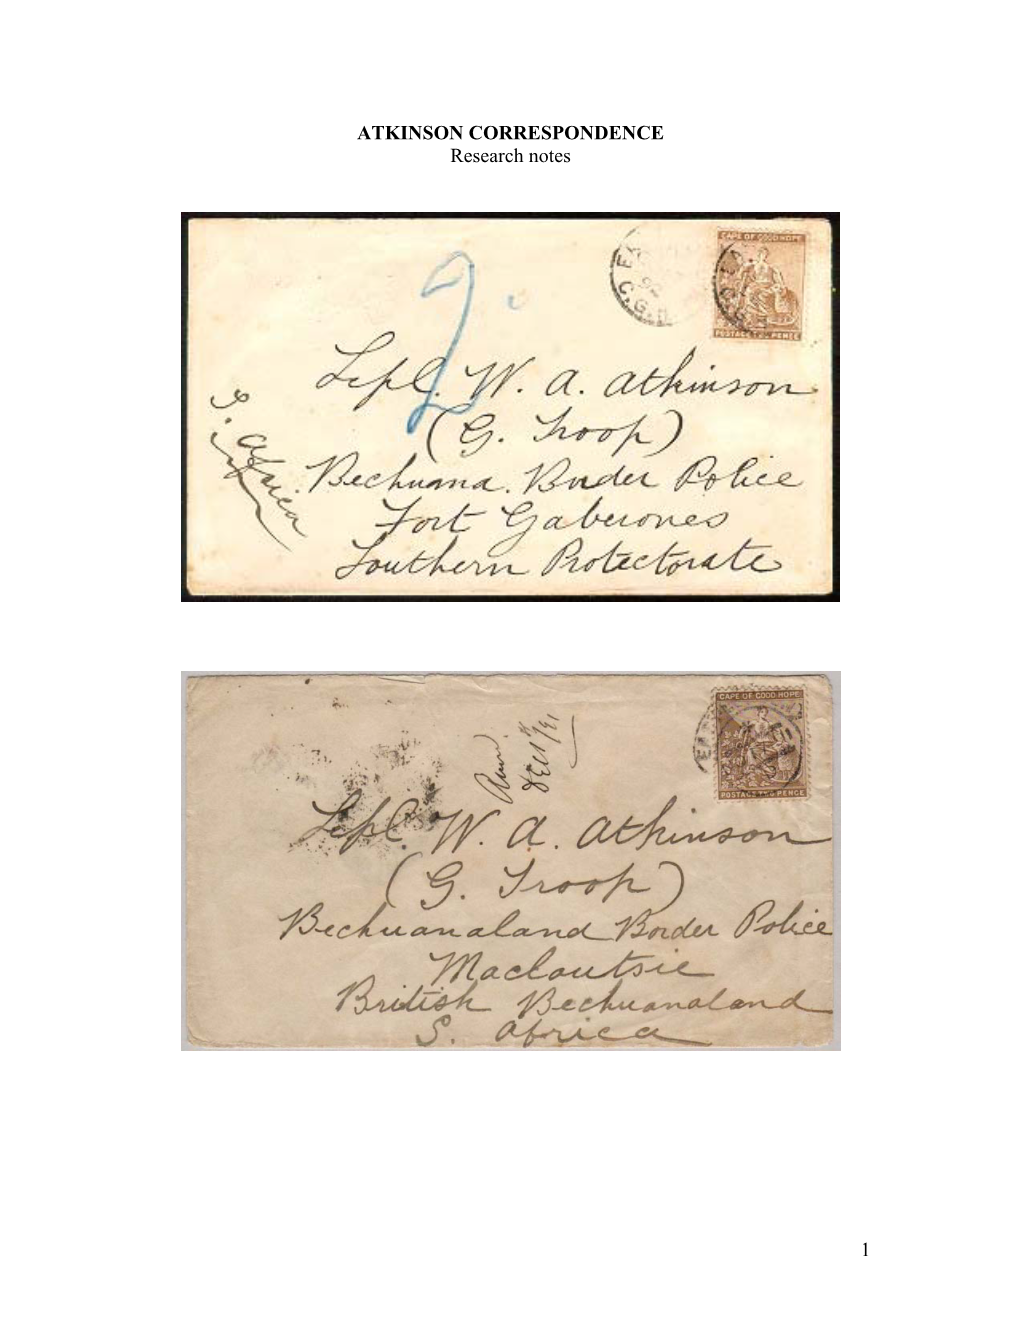 ATKINSON CORRESPONDENCE
Research notes
CAPE OF GOOD HOPE
POSTAGE TWO PENCE
92
C.G.H
2
Lcpl. W. A. Atkinson
(G. Troop)
Bechuana. Border Police
Fort Gaberones
Southern Protectorate
S. Africa
CAPE OF GOOD HOPE
POSTAGE TWO PENCE
Lcpl. W. A. Atkinson
(G. Troop)
Bechuanaland Border Police
Macloutsie
British Bechuanaland
S. Africa
1